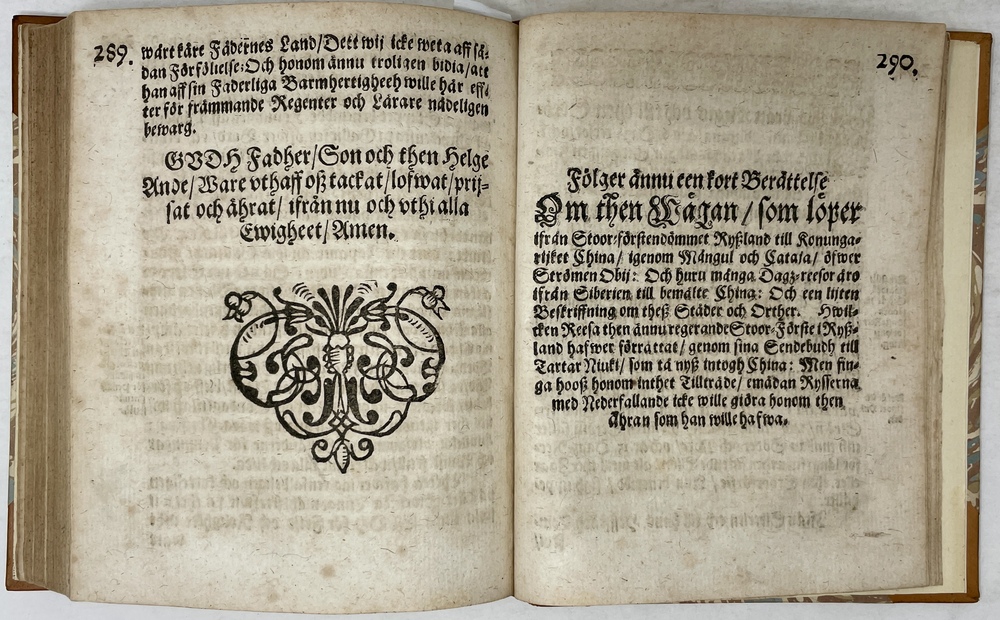 289.
wårt käre Fädernes Land/Dett wij icke weta aff så-
dan Förfölielse: Och honom ännu troligen bidia/att
han aff sin Faderliga Barmhertigheeh wille här eff-
ter för främmande Regenter och Lärare nådeligen
bewara.
GUDH Fadher/Son och then Helge
Ande/Ware vthaff oß tackat/lofwat/prij-
sat och ährat/ ifrån nu och vthi alla
Ewigheet/Amen.
290.
Fölger ännu een kort Berättelse
Om then Wägan/som löper
ifrån Stoor-förstendömmet Ryßland till Konunga-
rijket China/ igenom Mångul och Cataja/ öfwer
Strömen Obij: Och huru många Dagz-reesor äro
ifrån Siberien till bemälte China: Och een lijten
Beskriffning om theß Städer och Orther. Hwil-
cken Reesa then ännu regerande Stoor-Förste i Ryß-
land hafwer förrättat/ genom sina Sendebudh till
Tartar Niuki/ som tå nyß intogh China: Men fin-
ga hooß honom inthet Tillträde/ emädan Rysserna
med Nederfallande icke wille giöra honom then
ähran som han wille hafwa.